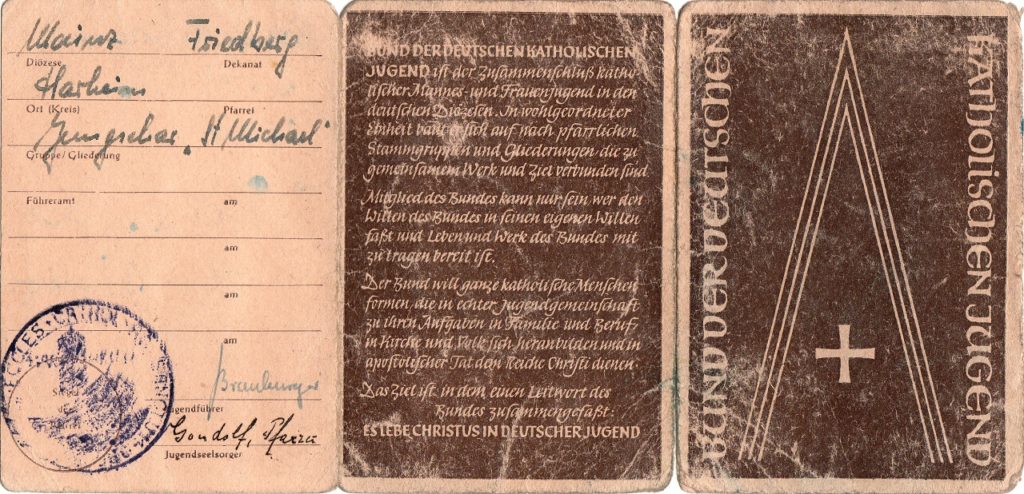 Mainz Friedberg
Diözese Dekanat
Harheim
Ort (Kreis) Pfarrei
Jungschar „St Michael"
Gruppe/Gliederung
Führeramt am
am
am
am
Jugendführer
Gondolf, Pfarrer
Jugendseelsorger
BUND DER DEUTSCHEN KATHOLISCHEN
JUGEND ist der Zusammenschluß katho-
lischer Mannes- und Frauenjugend in den
deutschen Diözesen. In wohlgeordneter
Einheit baut er sich auf nach pfarrlichen
Stammgruppen und Gliederungen die zu
gemeinsamem Werk und Ziel verbunden sind
Mitglied des Bundes kann nur sein wer den
Willen des Bundes in seinen eigenen Willen
faßt und Leben und Werk des Bundes mit
zu tragen bereit ist.
Der Bund will ganze katholische Menschen
formen, die in echter Jugendgemeinschaft
zu ihren Aufgaben in Familie und Beruf
in Kirche und Volk sich heranbilden und in
apostolischer Tat dem Reiche Christi dienen
Das Ziel ist in dem einen Leitwort des
Bundes zusammengefaßt:
ES LEBE CHRISTUS IN DEUTSCHER JUGEND
BUND DER DEUTSCHEN
KATHOLISCHEN JUGEND